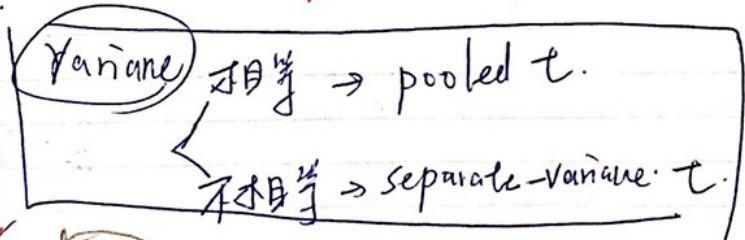 Variance
相等 → pooled t.
不相等 → separate-variance. t.